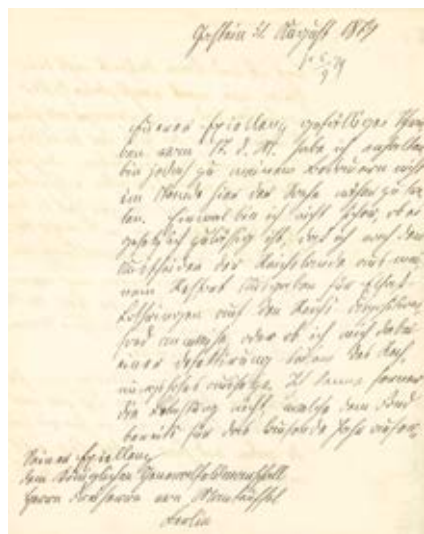 Gastein 31. August 1879
Euerer Excellenz gefälliges Schrei-
ben vom 12. d. M. habe ich erhalten
bin jedoch zu meinem Bedauern nicht
im Stande hier der Sache näher zu tre-
ten. Einmal bin ich nicht sicher, ob es
gesetzlich zulässig ist, daß ich nach dem
Ausscheiden der Reichslande aus mei-
nem Ressort Ausgaben für Elsaß-
Lothringen auf den Reichs-
anweise, oder ob ich mich dabei
einer
aussetze. Ich kenne ferner
die nicht, welche dem Fond
bereits für das laufende Jahr
Seiner Excellenz
dem Königlichen Generalfeldmarschall
Herrn Freiherrn von Manteuffel
Berlin